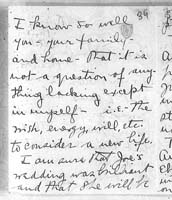 86
I know so well
you - your family -
and home - that it is
not a question of any-
thing lacking except
in myself - i.e. the
wish, energy, will, etc.
to consider a new life.
I am sure that Joe's
wedding was brilliant
and that she will be